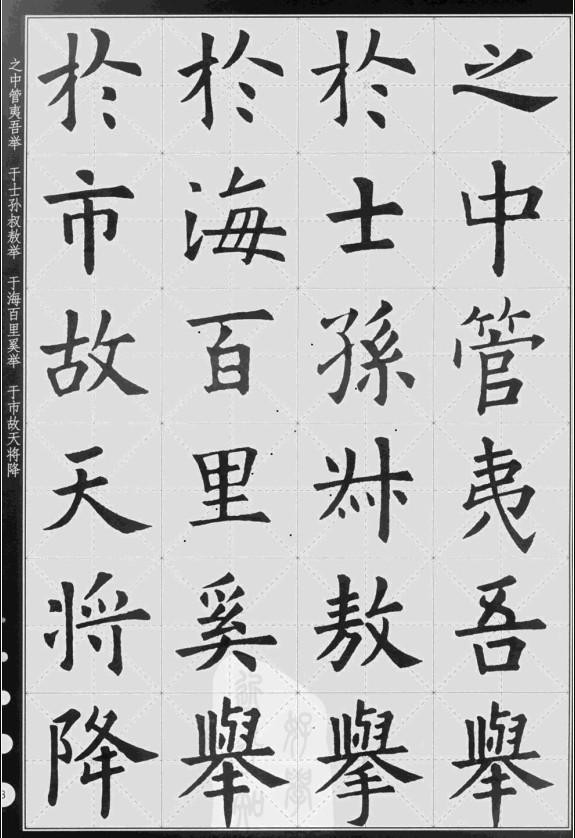 之中管夷吾舉
於士孫叔敖舉
於海百里奚舉
於市故天將降
之中管夷吾举 于士孙叔敖举 于海百里奚举 于市故天将降